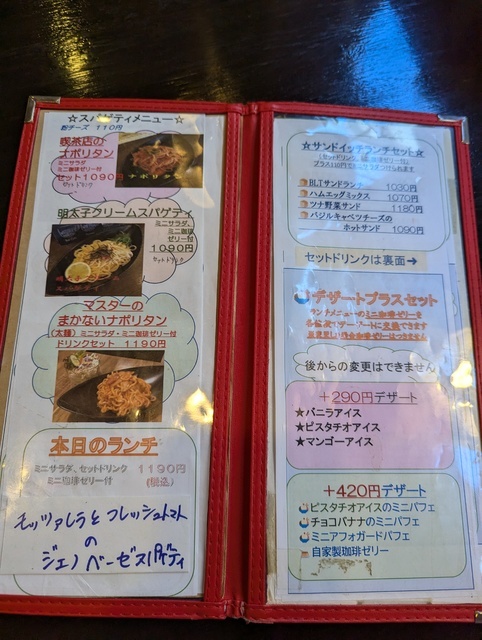 ☆スパゲティメニュー☆
粉チーズ 110円
喫茶店の
ナポリタン
ミニサラダ
ミニ珈琲ゼリー付
セット1090円
セットドリンク
ナポリタン
明太子クリームスパゲティ
ミニサラダ、
ミニ珈琲
ゼリー付
1090円
セットドリンク
マスターの
まかないナポリタン
(太麺) ミニサラダ・ミニ珈琲ゼリー付
ドリンクセット 1190円
本日のランチ
ミニサラダ、セットドリンク 1190円
ミニ珈琲ゼリー付 (税込)
モッツァレラとフレッシュトマト
の
ジェノベーゼスパゲティ
☆サンドイッチランチセット☆
BLTサンドランチ 1030円
ハムエッグミックス 1070円
ツナ野菜サンド 1180円
バジルキャベツチーズの
ホットサンド 1090円
セットドリンクは裏面→
デザートプラスセット
ランチメニューのミニ珈琲ゼリーを
後からの変更はできません
+290円デザート
★バニラアイス
★ピスタチオアイス
★マンゴーアイス
+420円デザート
ピスタチオアイスのミニパフェ
チョコバナナのミニパフェ
ミニアフォガードパフェ
自家製珈琲ゼリー